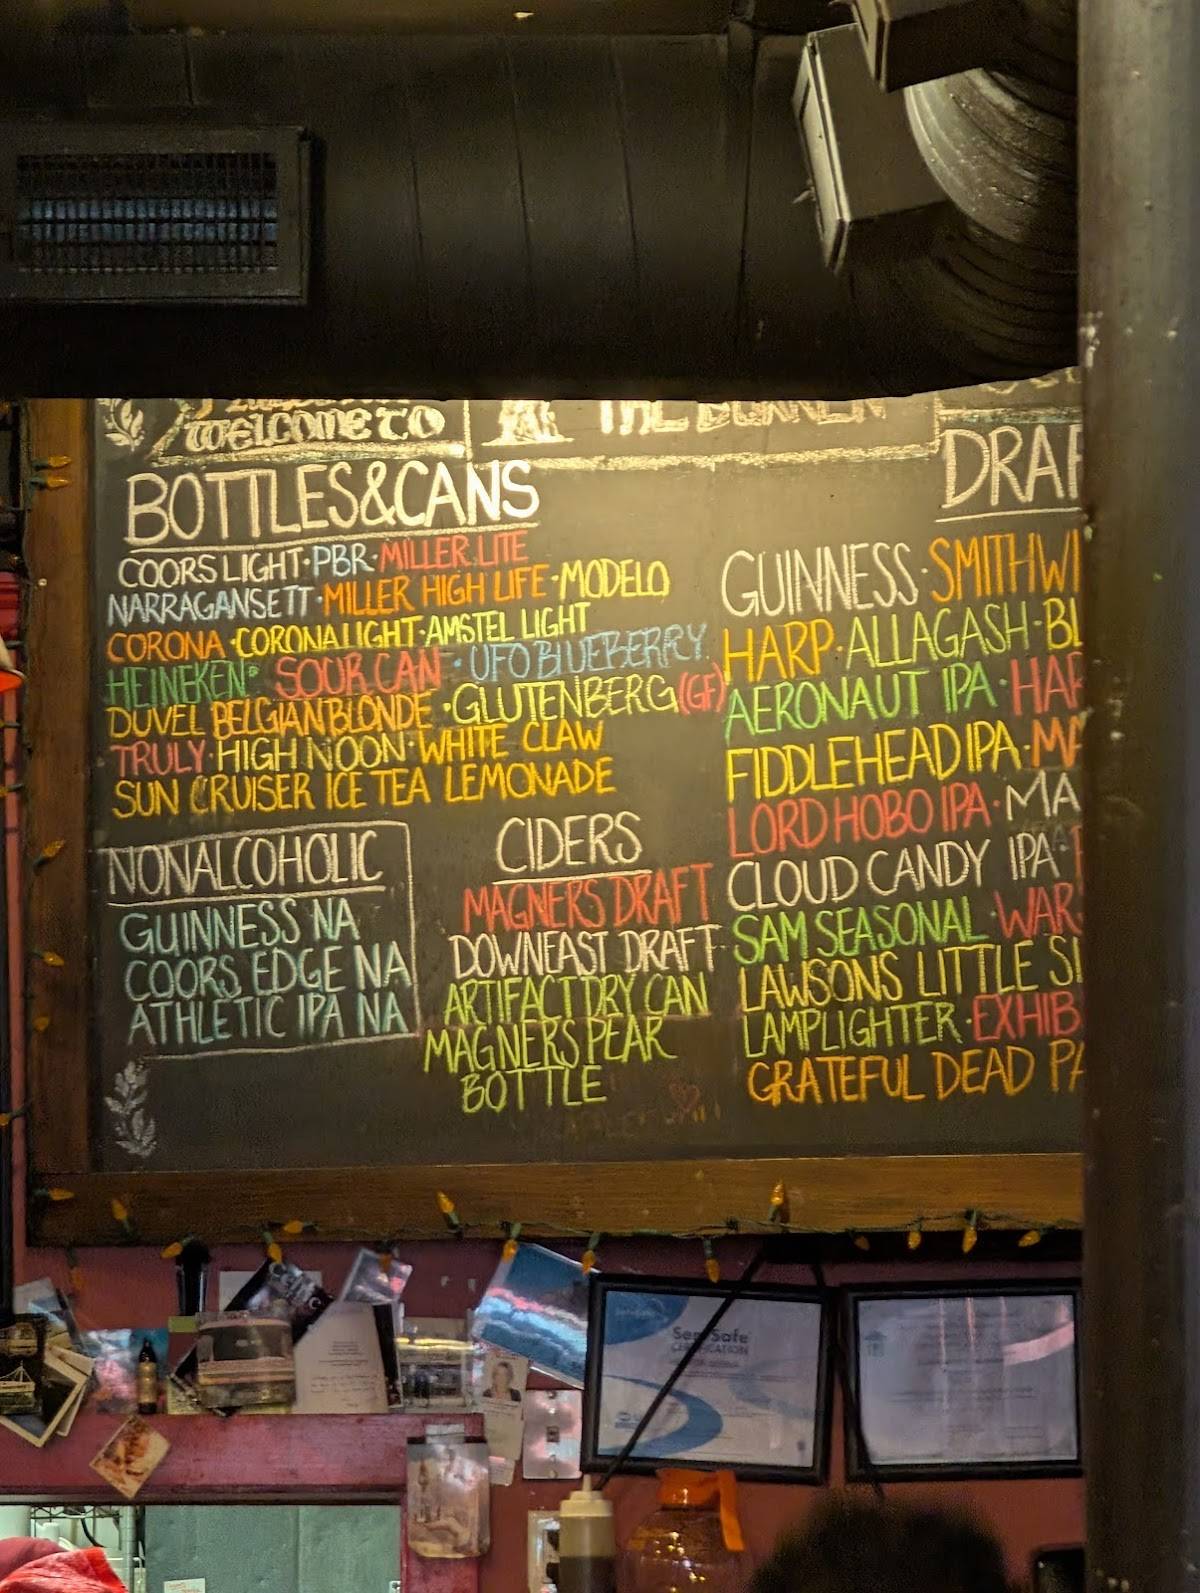 WELCOME TO
THE BURREN
BOTTLES&CANS
COORS LIGHT·PBR·MILLER LITE
NARRAGANSETT·MILLER HIGH LIFE·MODELO
CORONA·CORONA LIGHT·AMSTEL LIGHT
HEINEKEN· SOUR CAN·UFO BLUEBERRY
DUVEL BELGIAN BLONDE·GLUTENBERG (GF)
TRULY·HIGH NOON·WHITE CLAW
SUN CRUISER ICE TEA LEMONADE
NONALCOHOLIC
GUINNESS NA
COORS EDGE NA
ATHLETIC IPA NA
CIDERS
MAGNERS DRAFT
DOWNEAST DRAFT
ARTIFACT DRY CAN
MAGNERS PEAR
BOTTLE
DRAF
GUINNESS·SMITHWI
HARP·ALLAGASH·BL
AERONAUT IPA·HAR
FIDDLEHEAD IPA·MA
LORD HOBO IPA·MA
CLOUD CANDY IPA
SAM SEASONAL·WAR
LAWSONS LITTLE SI
LAMPLIGHTER·EXHIB
GRATEFUL DEAD PA
ServSafe
CERTIFICATION